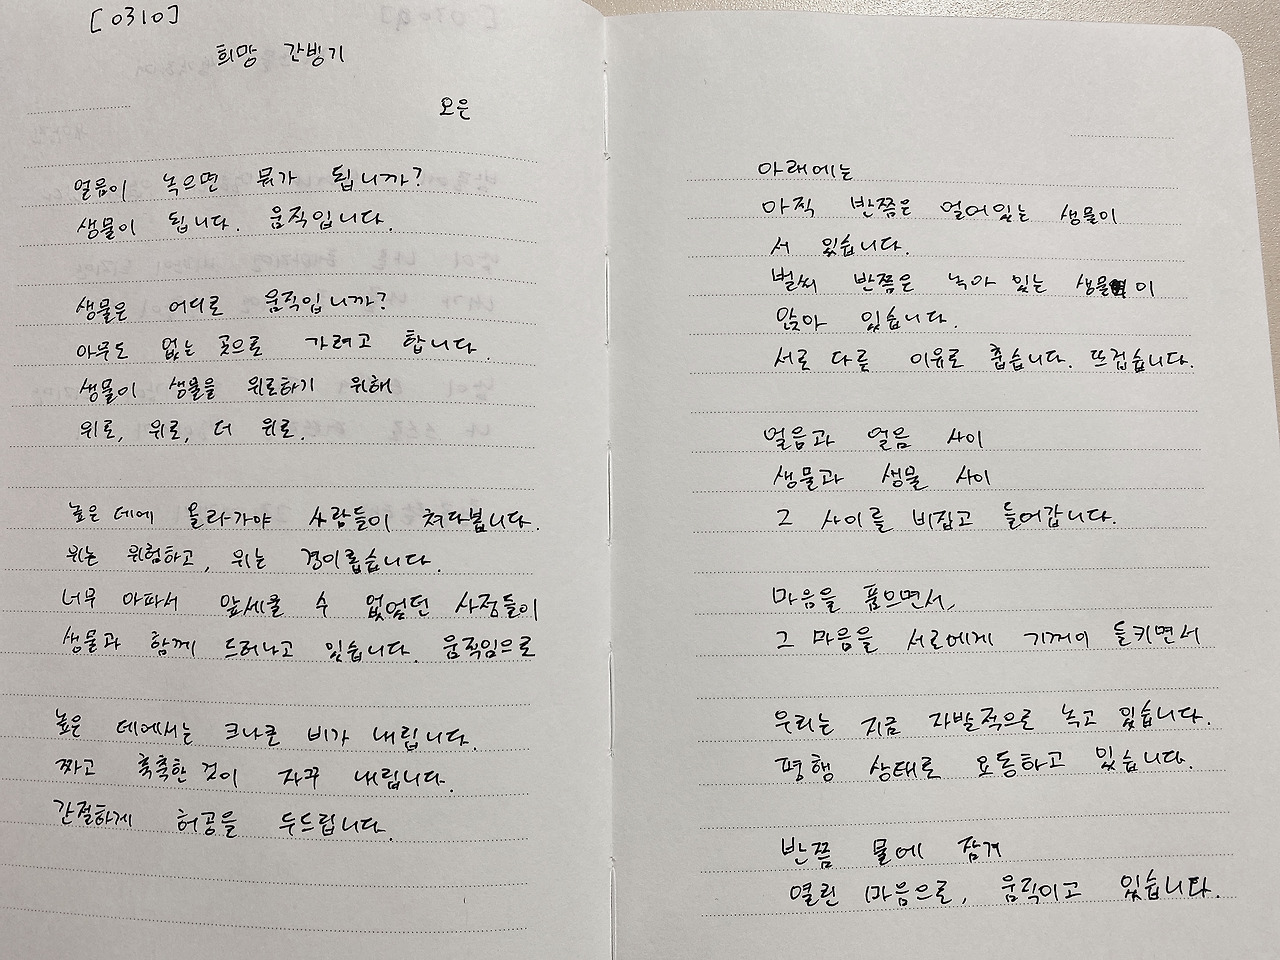 [0310]
희망 간빙기
오은
얼음이 녹으면 뭐가 됩니까?
생물이 됩니다. 움직입니다.
생물은 어디로 움직입니까?
아무도 없는 곳으로 가려고 합니다.
생물이 생물을 위로하기 위해
위로, 위로, 더 위로.
높은 데에 올라가야 사람들이 쳐다봅니다.
위는 위험하고, 위는 경이롭습니다.
너무 아파서 앞세울 수 없었던 사정들이
생물과 함께 드러나고 있습니다. 움직임으로
높은 데에서는 크나큰 비가 내립니다.
짜고 축축한 것이 자꾸 내립니다.
간절하게 허공을 두드립니다.
아래에는
아직 반쯤은 얼어있는 생물이
서 있습니다.
벌써 반쯤은 녹아 있는 생물이
앉아 있습니다.
서로 다른 이유로 춥습니다. 뜨겁습니다.
얼음과 얼음 사이
생물과 생물 사이
그 사이를 비집고 들어갑니다.
마음을 품으면서,
그 마음을 서로에게 기꺼이 들키면서
우리는 지금 자발적으로 녹고 있습니다.
평행 상태로 요동하고 있습니다.
반쯤 물에 잠겨
열린 마음으로, 움직이고 있습니다.